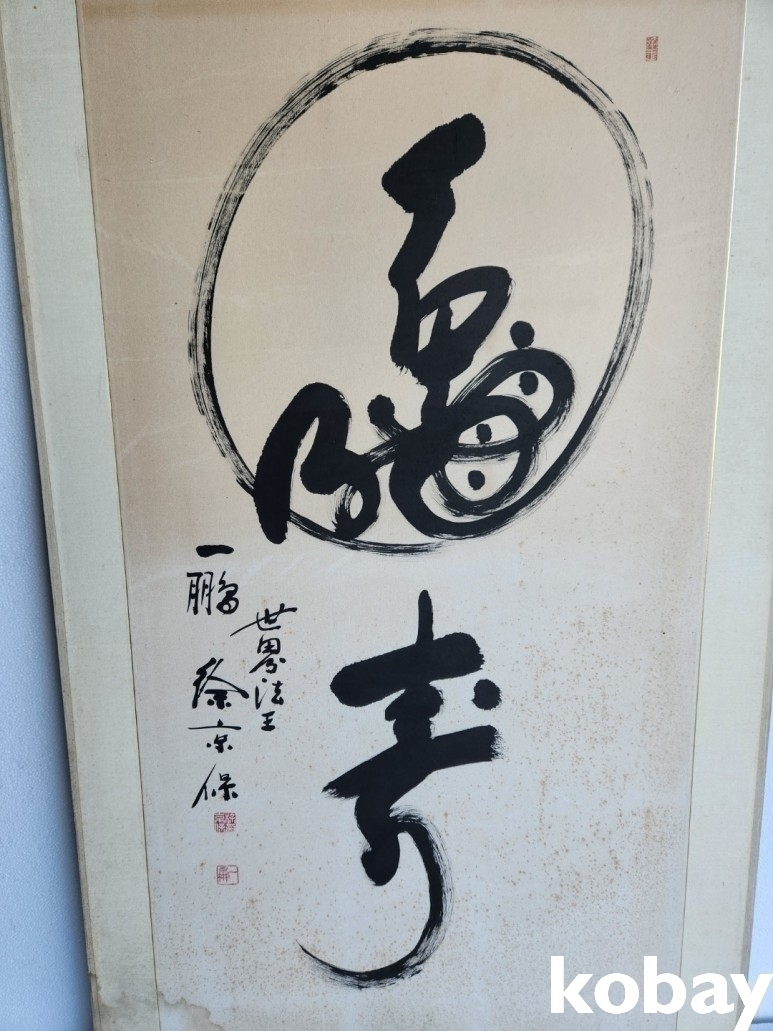 壽
世界法王
一鵬 徐京保
kobay